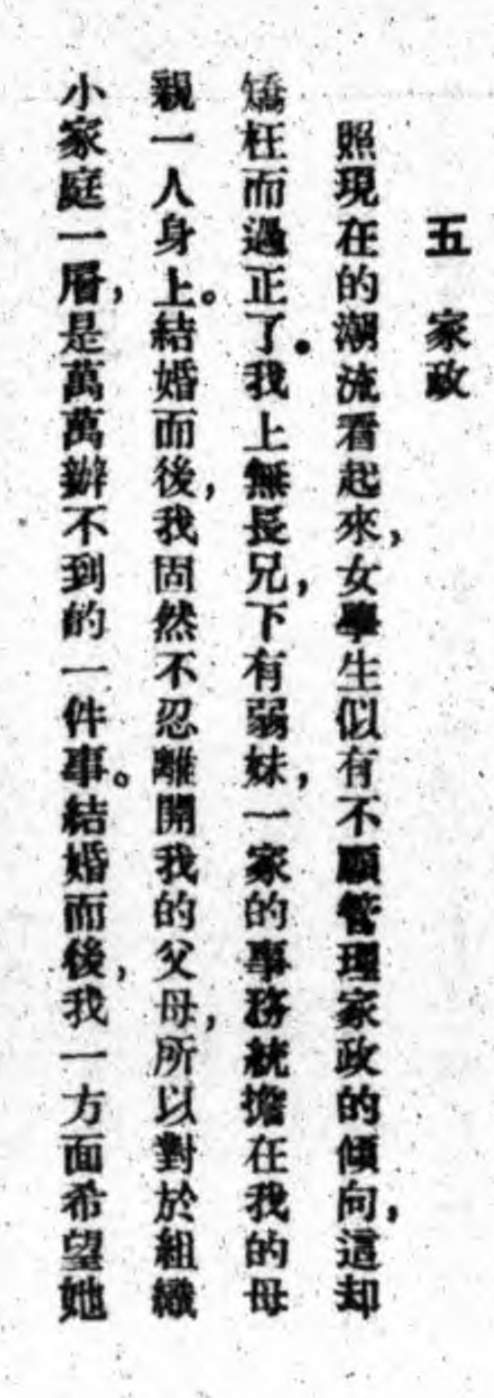 五　家政
照現在的潮流看起來，女學生似有不願管理家政的傾向，這却
矯枉而過正了。我上無長兄，下有弱妹，一家的事務統擔在我的母
親一人身上。結婚而後，我固然不忍離開我的父母，所以對於組織
小家庭一層，是萬萬辦不到的一件事。結婚而後，我一方面希望她